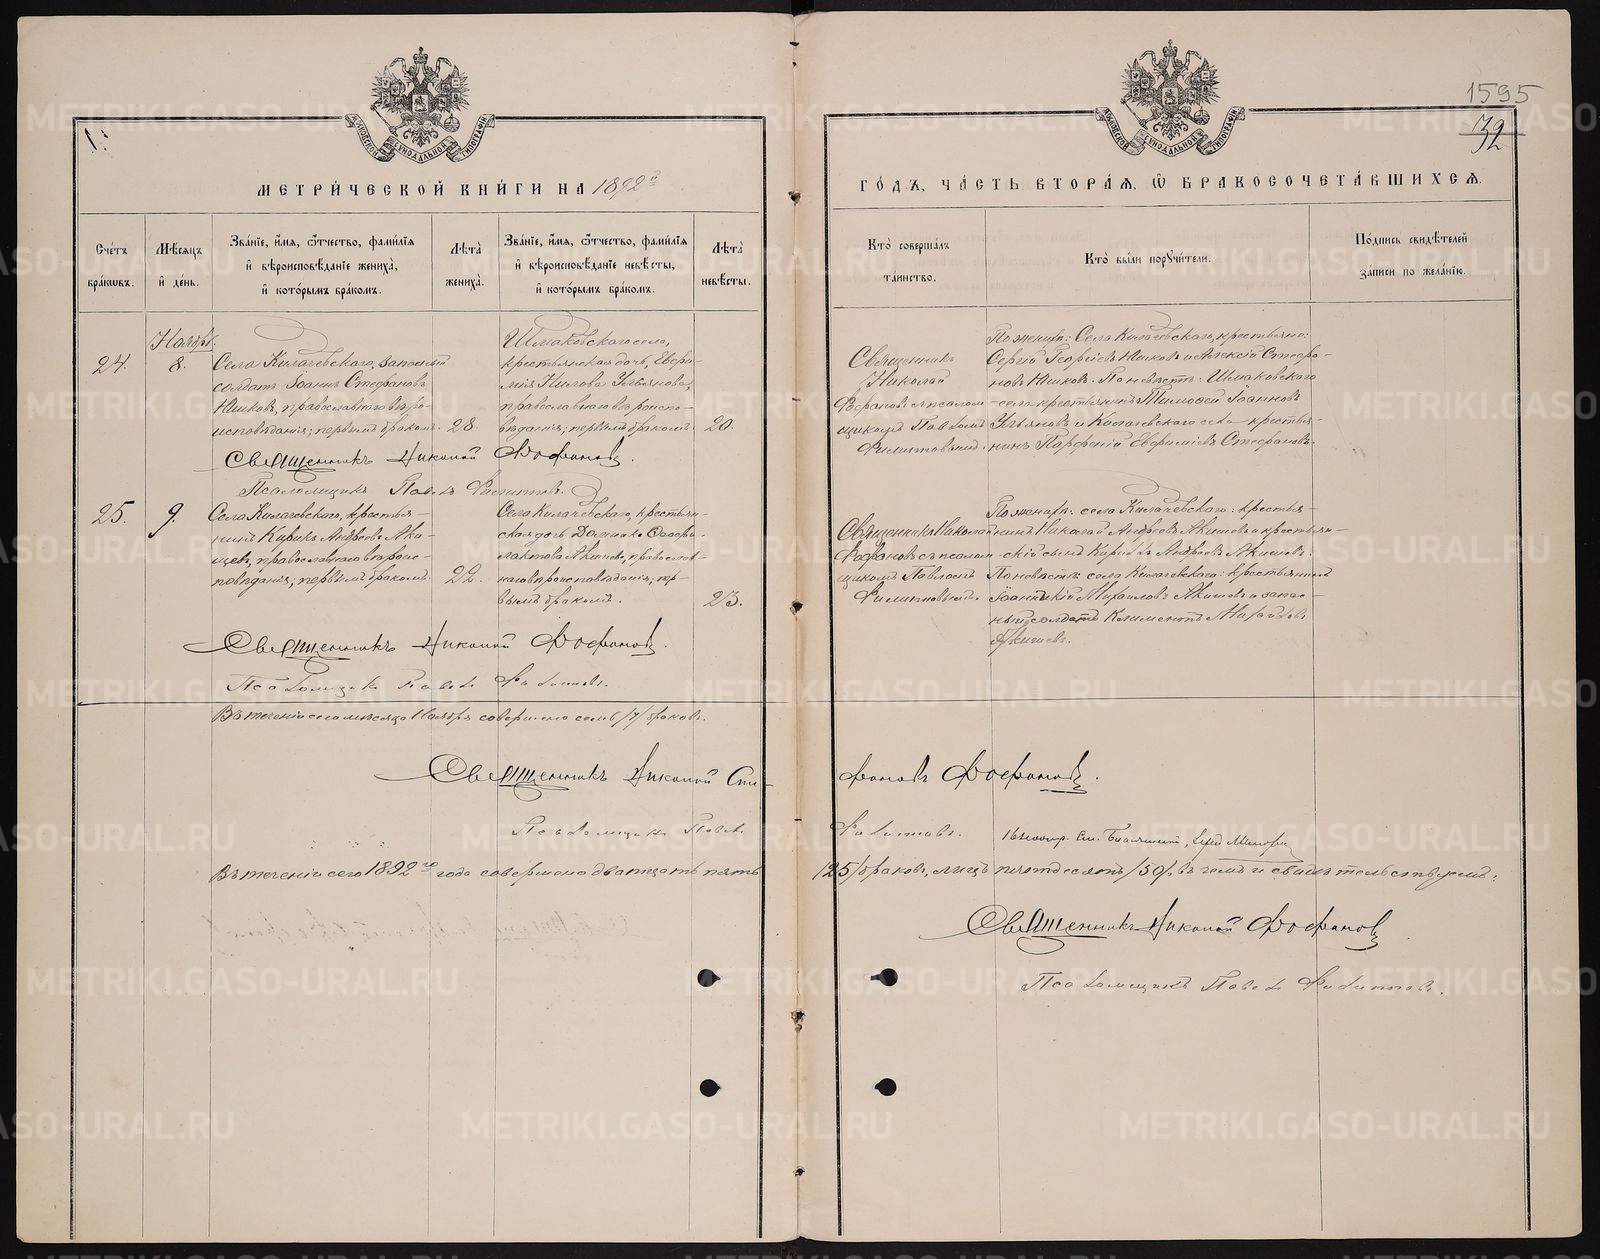 1595
32
МОСКОВСКОЙ СУНОДАЛЬНОЙ ТИПОГРАФІИ
МОСКОВСКОЙ СУНОДАЛЬНОЙ ТИПОГРАФІИ
МЕТРИ́ЧЕСКОЙ КНИ́ГИ НА 1892й
ГО́ДЪ, ЧА́СТЬ ВТОРА́Я, Ѿ БРАКОСОЧЕТА́ВШИХСЯ.
Сче́тъ бра́ковъ.
Мѣ́сяцъ и҆ де́нь.
Зва́нїе, и҆́мя, ѻ҆́тчество, фами́лїя и҆ вѣроисповѣ́данїе жениха̀, и҆ кото́рымъ бра́комъ.
Лѣта̀ жениха̀.
Зва́нїе, и҆́мя, ѻ҆́тчество, фами́лїя и҆ вѣроисповѣ́данїе невѣ́сты, и҆ кото́рымъ бра́комъ.
Лѣта̀ невѣ́сты.
Кто̀ соверша́лъ та́инство.
Кто̀ бы́ли порꙋчи́тели.
По́дпись свидѣ́телей за́писи по жела́нїю.
24.
Ноябрь.
8.
Села Киргичевскаго, запасный
солдатъ Іоаннъ Стефановъ
Юшковъ, православнаго вѣро-
исповѣданія; первымъ бракомъ.
28.
Шмаковскаго села,
крестьянская дочь, Евфи-
мія Нилова Ульянова,
православнаго вѣроиспо-
вѣданія; первымъ бракомъ.
20.
Священникъ
Николай
Фофановъ съ псалом-
щикомъ Павломъ
Филипповымъ.
По женихѣ: Села Киргичевскаго, крестьяне:
Сергій Георгіевъ Юшковъ и Алексій Стефа-
новъ Юшковъ. По невѣстѣ: Шмаковскаго
села крестьянинъ Тимофей Іоанновъ
Ульяновъ и Киргичевскаго села крестья-
нинъ Парфеній Евфиміевъ Стефановъ.
Священникъ Николай Фофановъ.
Псаломщикъ Павелъ Филипповъ.
25.
9.
Села Киргичевскаго, крестья-
нинъ Кирикъ Андреевъ Аки-
шевъ, православнаго вѣроис-
повѣданія, первымъ бракомъ.
22.
Села Киргичевскаго, крестьян-
ская дочь Домника Феофи-
лактова Акишева, православ-
наго вѣроисповѣданія; пер-
вымъ бракомъ.
23.
Священникъ Николай
Фофановъ съ псалом-
щикомъ Павломъ
Филипповымъ.
По женихѣ: села Киргичевскаго: крестья-
нинъ Николай Андреевъ Акишевъ и крестьян-
скій сынъ Кирилъ Андреевъ Акишевъ.
По невѣстѣ: села Киргичевскаго: крестьянинъ
Іоанникій Михаиловъ Акишевъ и запас-
ный солдатъ Климентъ Михайловъ
Акишевъ.
Священникъ Николай Фофановъ.
Псаломщикъ Павелъ Филипповъ.
Въ теченіи сего мѣсяца Ноября совершено семь /7/ браковъ.
Священникъ Николай Сте-
фановъ Фофановъ.
Псаломщикъ Павелъ
Филипповъ.
Въ теченіи сего 1892го года совершено двадцать пять
/25/ браковъ, лицъ пятьдесятъ /50/, въ чемъ и свидѣтельствуемъ:
Священникъ Николай Фофановъ
Псаломщикъ Павелъ Филипповъ.
METRIKI.GASO-URAL.RU